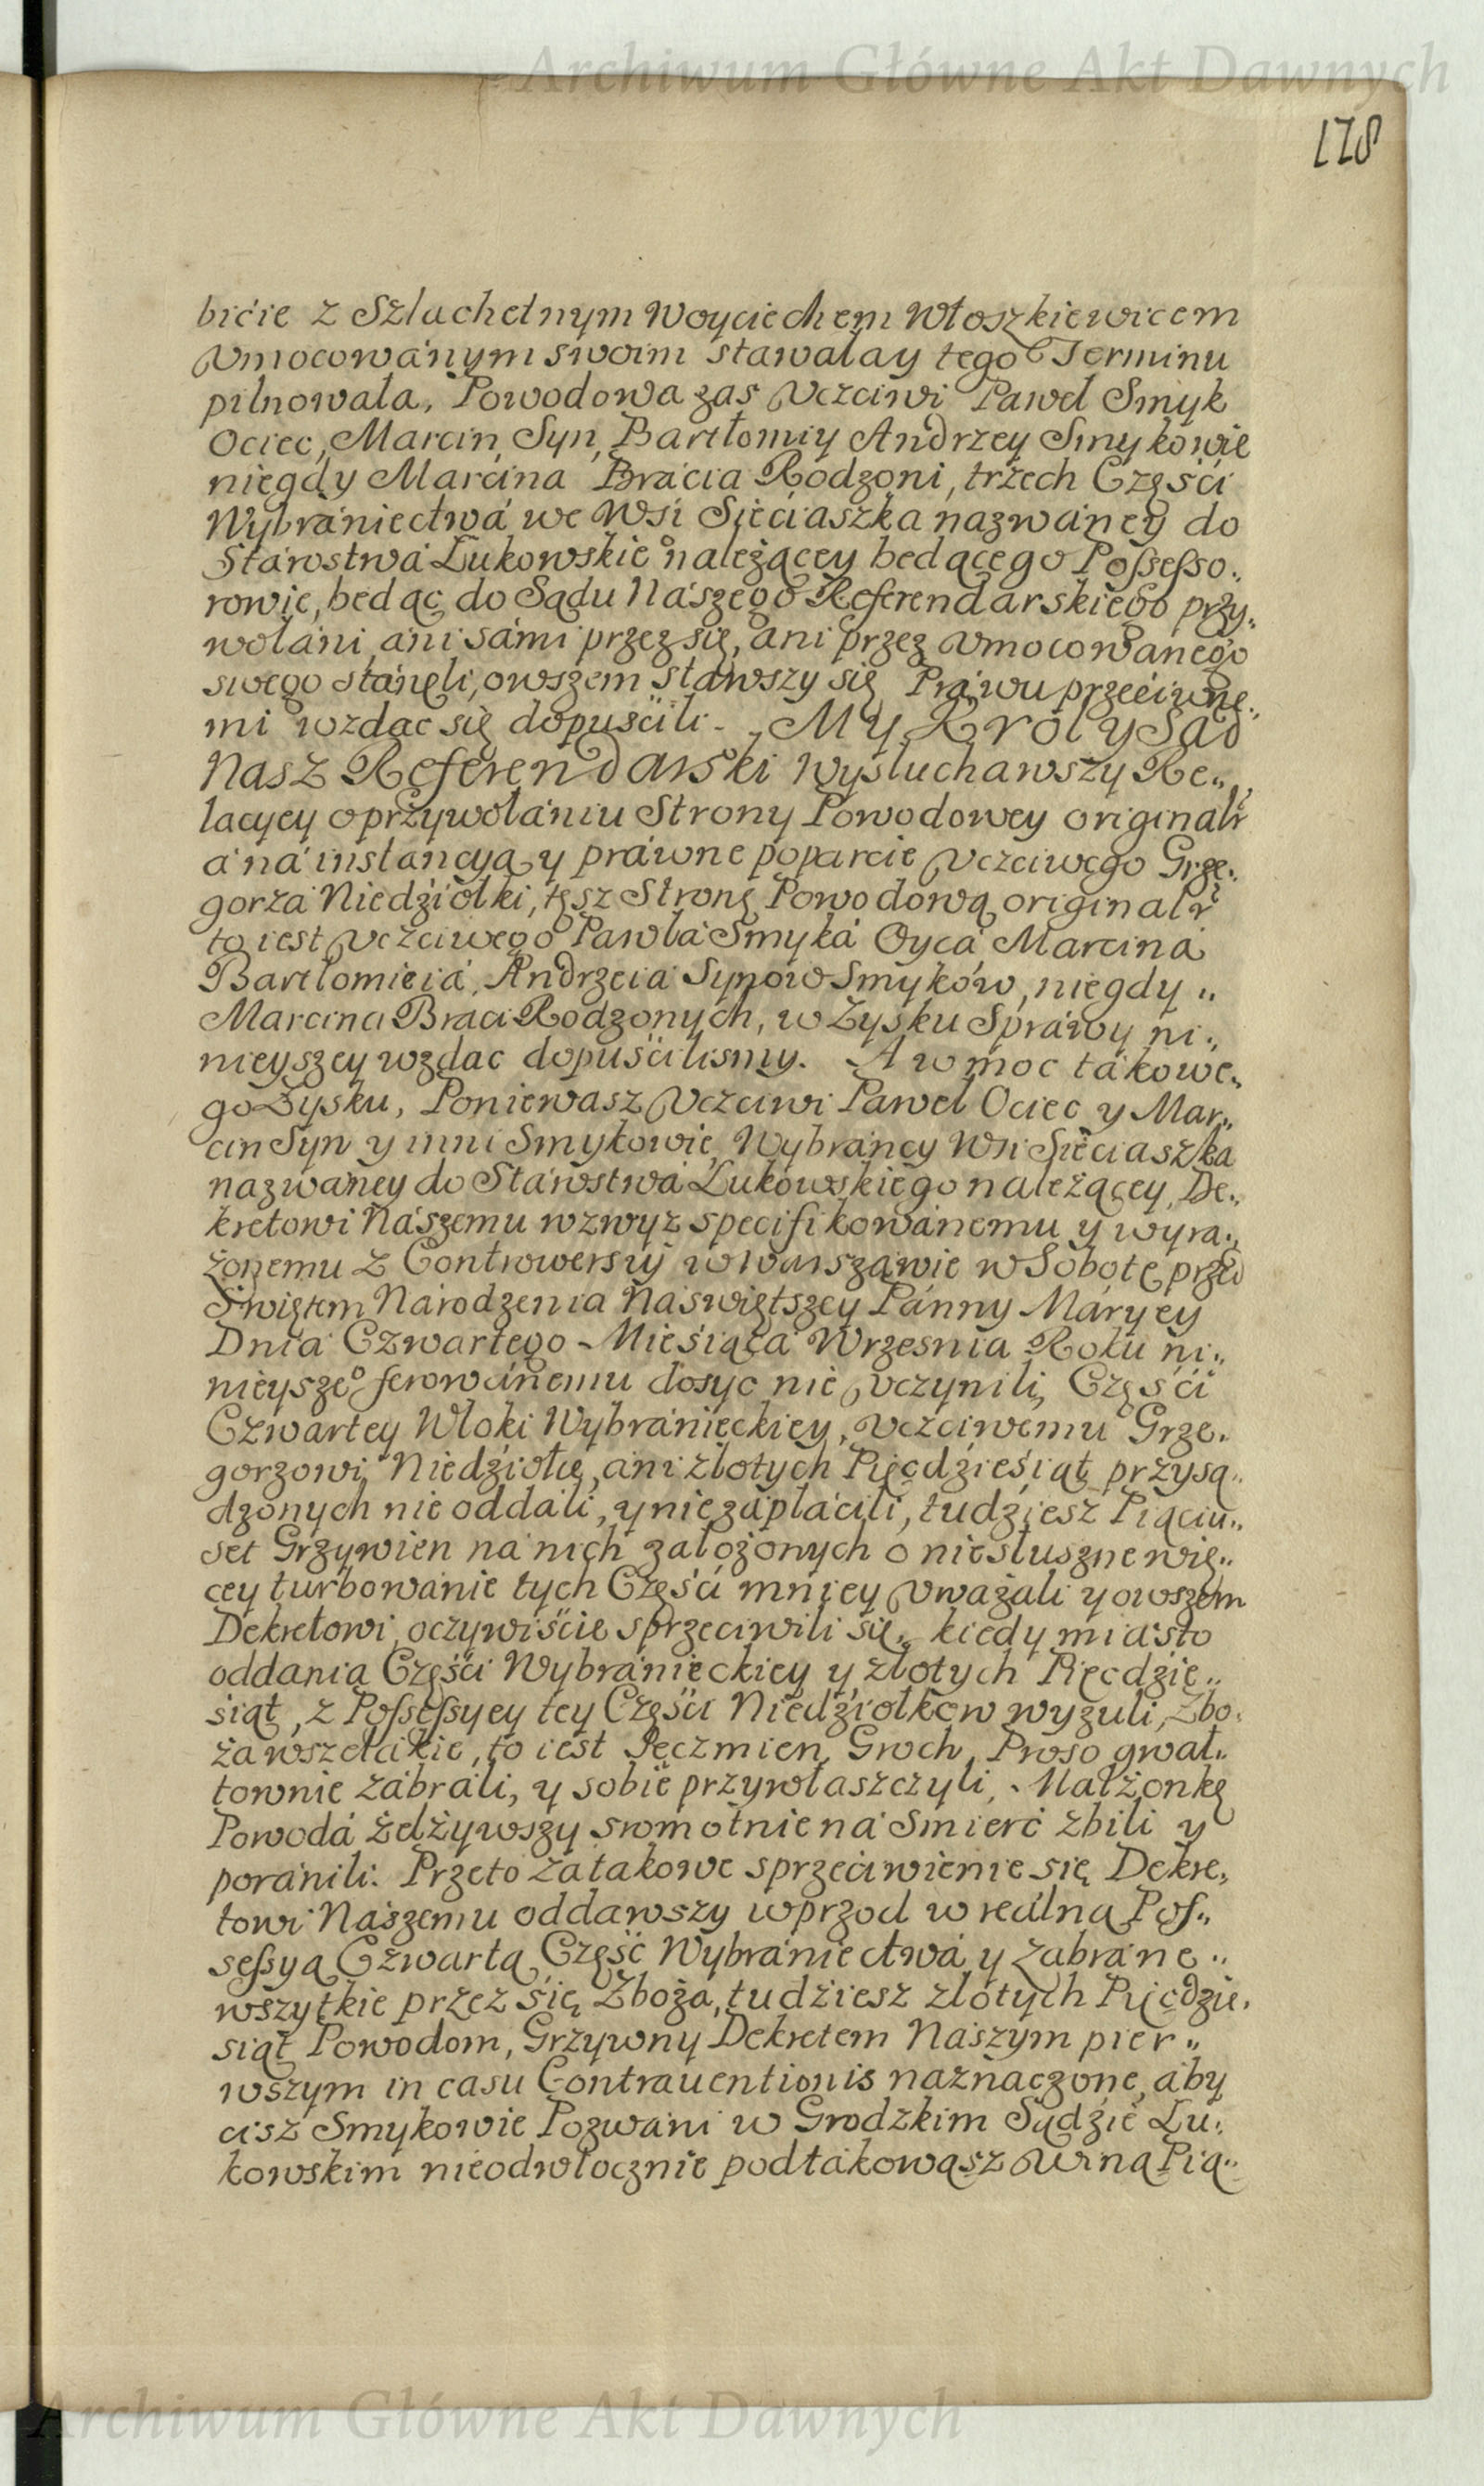 Archiwum Główne Akt Dawnych
178
bićie z Szlachetnym Woyciechem Włoszkiewicem
Vmocowánym swoim stawałay tego Terminu
pilnowała, Powodowa zas Vczciwi Paweł Smyk
Ociec, Marcin Syn, Bartłomiy Andrzey Smykowie
niegdy Marcina Bracia Rodzoni, trzech Częśći
Wybrániectwá we Wsi Sieciaszka názwáney do
Stárostwá Łukowskieº należącey bedącego Possesso„
rowie, będąc do Sądu Nászego Referendárskiego przy„
wołáni ani sámi przez się, áni przez Vmocowánego
swego stáneli, owszem stáwszy się Práwu przećiwne„
mi wzdac się dopuśćili. My Krol y Sąd
Nasz Referendarski Wysłuchawszy Re„
lacyey o przywołániu Strony Powodowey originalr
á ná instáncyą y práwne poparcie Vczciwego Grze„
gorzá Niedźiołki, tęsz Stronę Powodową originalr
to iest Vczciwego Pawłá Smyká Oycá Marciná
Bartłomieiá, Andrzeiá Synow Smyków, niegdy „
Marcina Braci Rodzonych, w Zysku Spráwy ni„
nieyszey wzdac dopuśćilismy. A w moc tákowe„
go Zysku, Poniewasz Vczciwi Paweł Ociec y Mar„
cin Syn y inni Smykowie Wybráncy Wsi Sieciaszka
názwáney do Stárostwá Łukowskiego należącey, De„
kretowi Nászemu wzwyż specifikowánemu y wyra„
żonemu z Controwersyi w Warszáwie w Sobotę przed
Swiętem Národzenia Naswiętszey Pánny Máryey
Dniá Czwartego Mieśiącá Wrzesnia Roku ni„
nieyszeº ferowánemu dosyc nie Vczynili, Częśći
Czwartey Włoki Wybránieckiey, Vczciwemu Grze„
gorzowi Niedźiołce, áni złotych Pięćdźieśiąt przysą„
dzonych nie oddáli, y nie zápłáćili, tudźiesz Piąciu„
set Grzywien ná nich záłożonych o niesłuszne wię„
cey turbowánie tych Częśći mniey Vważáli y owszem
Dekretowi oczywiśćie sprzeciwili się, kiedy miásto
oddania Częśći Wybránieckiey y złotych Pięcdźie„
siąt, z Possessyey tey Częśći Niedźiołkow wyzuli, Zbo„
żá wszelákie, to iest Jęczmien, Groch, Proso gwał„
townie zábráli, y sobie przywłaszczyli, Małżonkę
Powodá zelżywszy sromotnie ná Smierć zbili y
poránili. Przeto zá tákowe sprzeciwienie się Dekre„
towi Nászemu oddawszy wprzod w reálną Pos„
sessyą Czwartą Część Wybrániectwá y zabráne „
wszytkie przez się Zboża, tudźiesz złotych Pięcdźie„
siąt Powodom, Grzywny Dekretem Nászym pier„
wszym in casu Contrauentionis náznáczone, áby
cisz Smykowie Pozwáni w Grodzkim Sądźie Łu„
kowskim nieodwłocznie pod tákowąsz Winą Pią„
Archiwum Główne Akt Dawnych